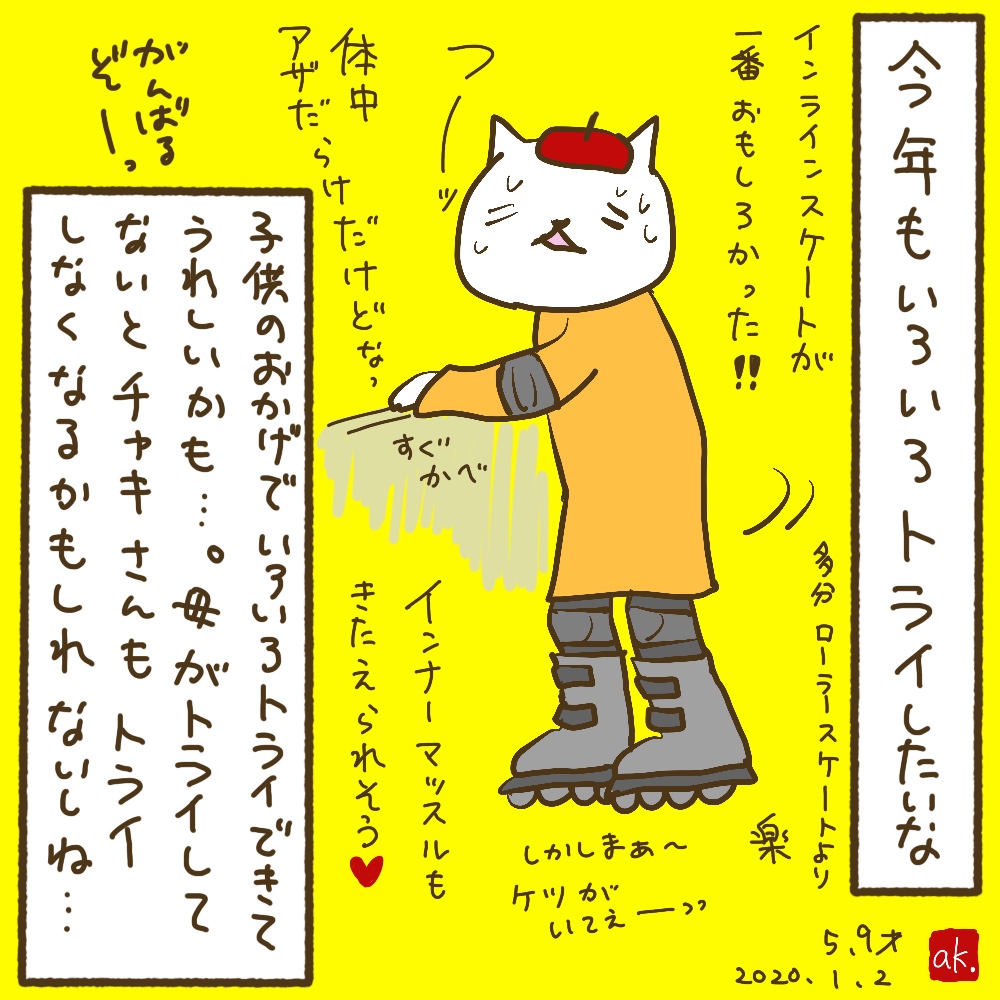 今年もいろいろトライしたいな
インラインスケートが
一番おもしろかった!!
多分ローラースケートより
楽
つーッ
体中
アザだらけだけどなっ
がんばる
ぞーっ
すぐ
かべ
インナーマッスルも
きたえられそう♥
しかしまぁ〜
ケツが
いてえーッッ
子供のおかげでいろいろトライできて
うれしいかも…。母がトライして
ないとチャキさんもトライ
しなくなるかもしれないしね…
5、9才
2020.1.2
ak.